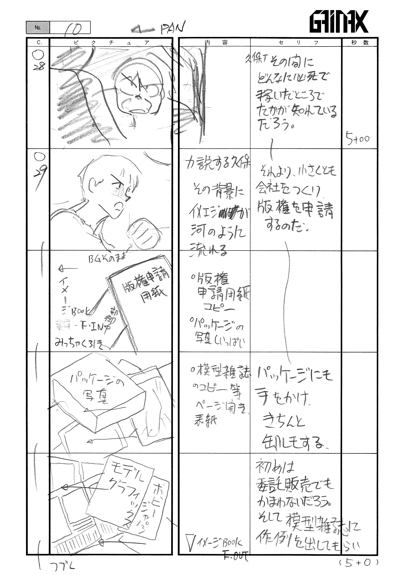 GAINAX
No. 10
← PAN
C. ピクチュア 内容 セリフ 秒数
28
久保「その間に
どんなに必死で
稼いだところで
たかが知れている
だろう。
5+00
29
力説する久保
その背景に
イメエジが
河のように
流れる
それより、小さくとも
会社をつくり
版権を申請
するのだ。
BGそのまま
イメージBOOK
F・IN
みっちゃく引き
版権申請
用紙
○版権
申請用紙
コピー
○パッケージの
写真いっぱい
パッケージの
写真
○模型雑誌
のコピー等
ページ開き
表紙
パッケージにも
手をかけ
きちんと
缶ルもする。
モデル
グラフィックス
ホビー
ジャパン
初めは
委託販売でも
かまわないだろう。
そして模型雑誌に
作例を出してもらい
イメージBOOK
F.OUT
(5+0)
つづく